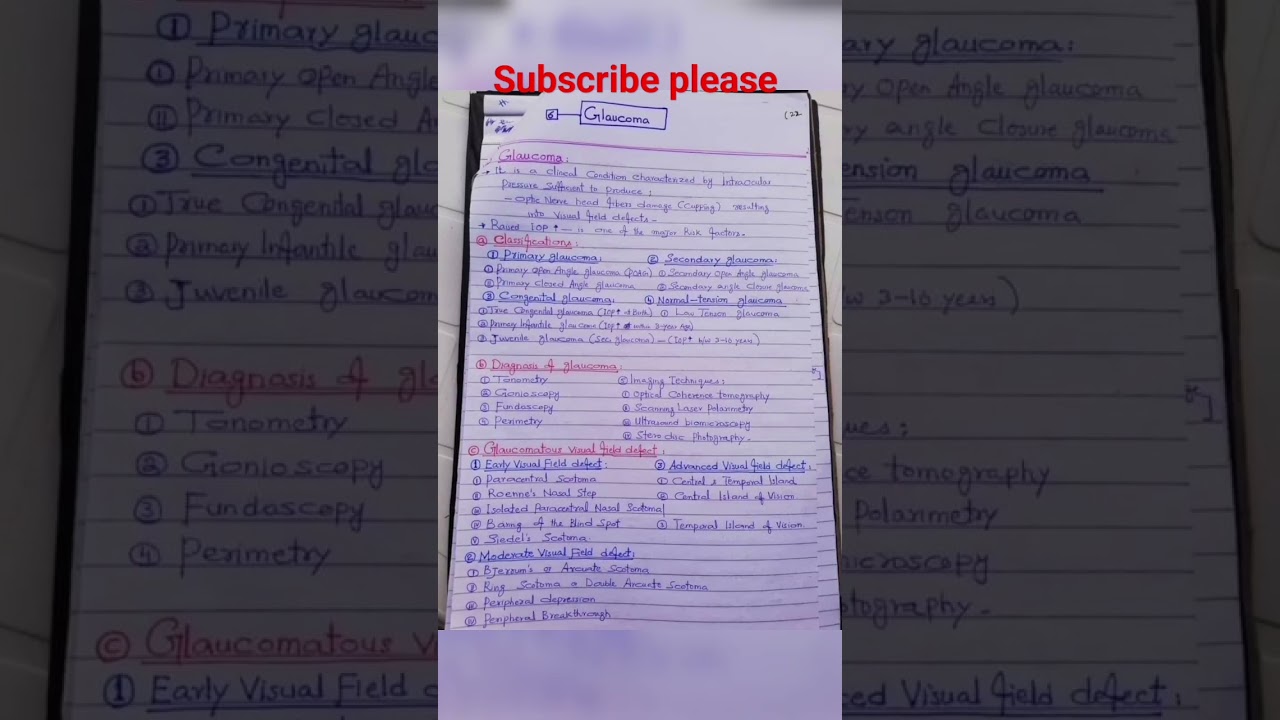 Subscribe please
6 Glaucoma
Glaucoma:
It is a clinical Condition characterized by Intraocular
Pressure Sufficient to produce:
- Optic Nerve head fibers damage (Cupping) resulting
into Visual field defects-
→ Raised IOP ↑ — is one of the major Risk factors-
ⓐ Classifications:
① Primary glaucoma: ② Secondary glaucoma:
① Primary Open Angle glaucoma (POAG) ① Secondary Open Angle glaucoma
② Primary Closed Angle glaucoma ② Secondary angle Closure glaucoma
③ Congenital glaucoma: ④ Normal-tension glaucoma
① True Congenital glaucoma (IOP↑ at Birth) ① Low Tension glaucoma
② Primary Infantile glaucoma (IOP↑ within 3-year Age)
③ Juvenile glaucoma (Sec. glaucoma) — (IOP↑ b/w 3-10 years)
ⓑ Diagnosis of glaucoma:
① Tonometry ⑤ Imaging Techniques:
② Gonioscopy ① Optical Coherence tomography
③ Fundoscopy ⑪ Scanning Laser Polarimetry
④ Perimetry ⑪⑪ Ultrasound biomicroscopy
Stereo disc photography-
ⓒ Glaucomatous Visual field defect:
① Early Visual Field defect: ③ Advanced Visual field defect:
① Paracentral Scotoma ① Central & Temporal Island
Roenne's Nasal Step ② Central Island of Vision
Isolated Paracentral Nasal Scotoma
Baring of the Blind Spot ③ Temporal Island of Vision.
Siedel's Scotoma.
② Moderate Visual Field defect:
Bjerrum's or Arcuate Scotoma
Ring Scotoma or Double Arcuate Scotoma
Peripheral depression
Peripheral Breakthrough